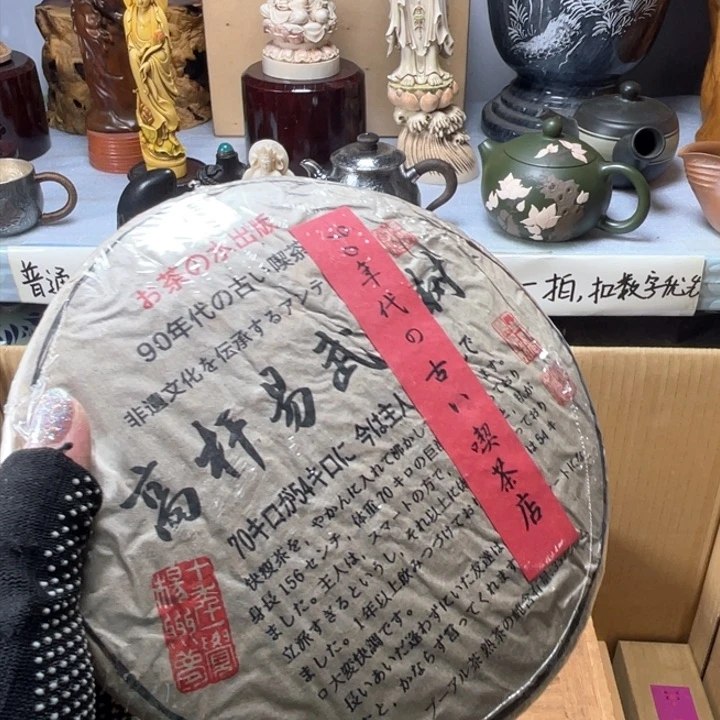 お茶の水出版
90年代の古い喫茶
非遺文化を伝承するアンテ
高杆易武
樹
90年代の古い喫茶店
70キロが54キロに 今は主人
快痩茶を、やかんに入れて沸かし
身長156センチ、体重70キロの巨
ました。主人は、スマートの方で、
立派すぎるというし、それ以上に体
ました。1年以上飲みつづけてお
ロ大変快調です。
長いあいだ逢わずにいた友達は
と、かならず言ってくれます
プーアル茶熟茶の組合
十年一覺
揚州夢
普通
一拍,扣数字优先